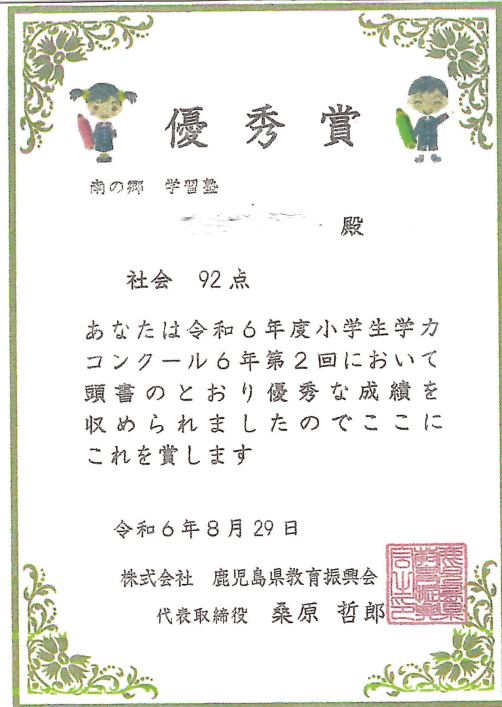 優秀賞
南の郷 学習塾
殿
社会 92点
あなたは令和6年度小学生学力
コンクール6年第2回において
頭書のとおり優秀な成績を
収められましたのでここに
これを賞します
令和6年8月29日
株式会社 鹿児島県教育振興会
代表取締役 桑原 哲郎